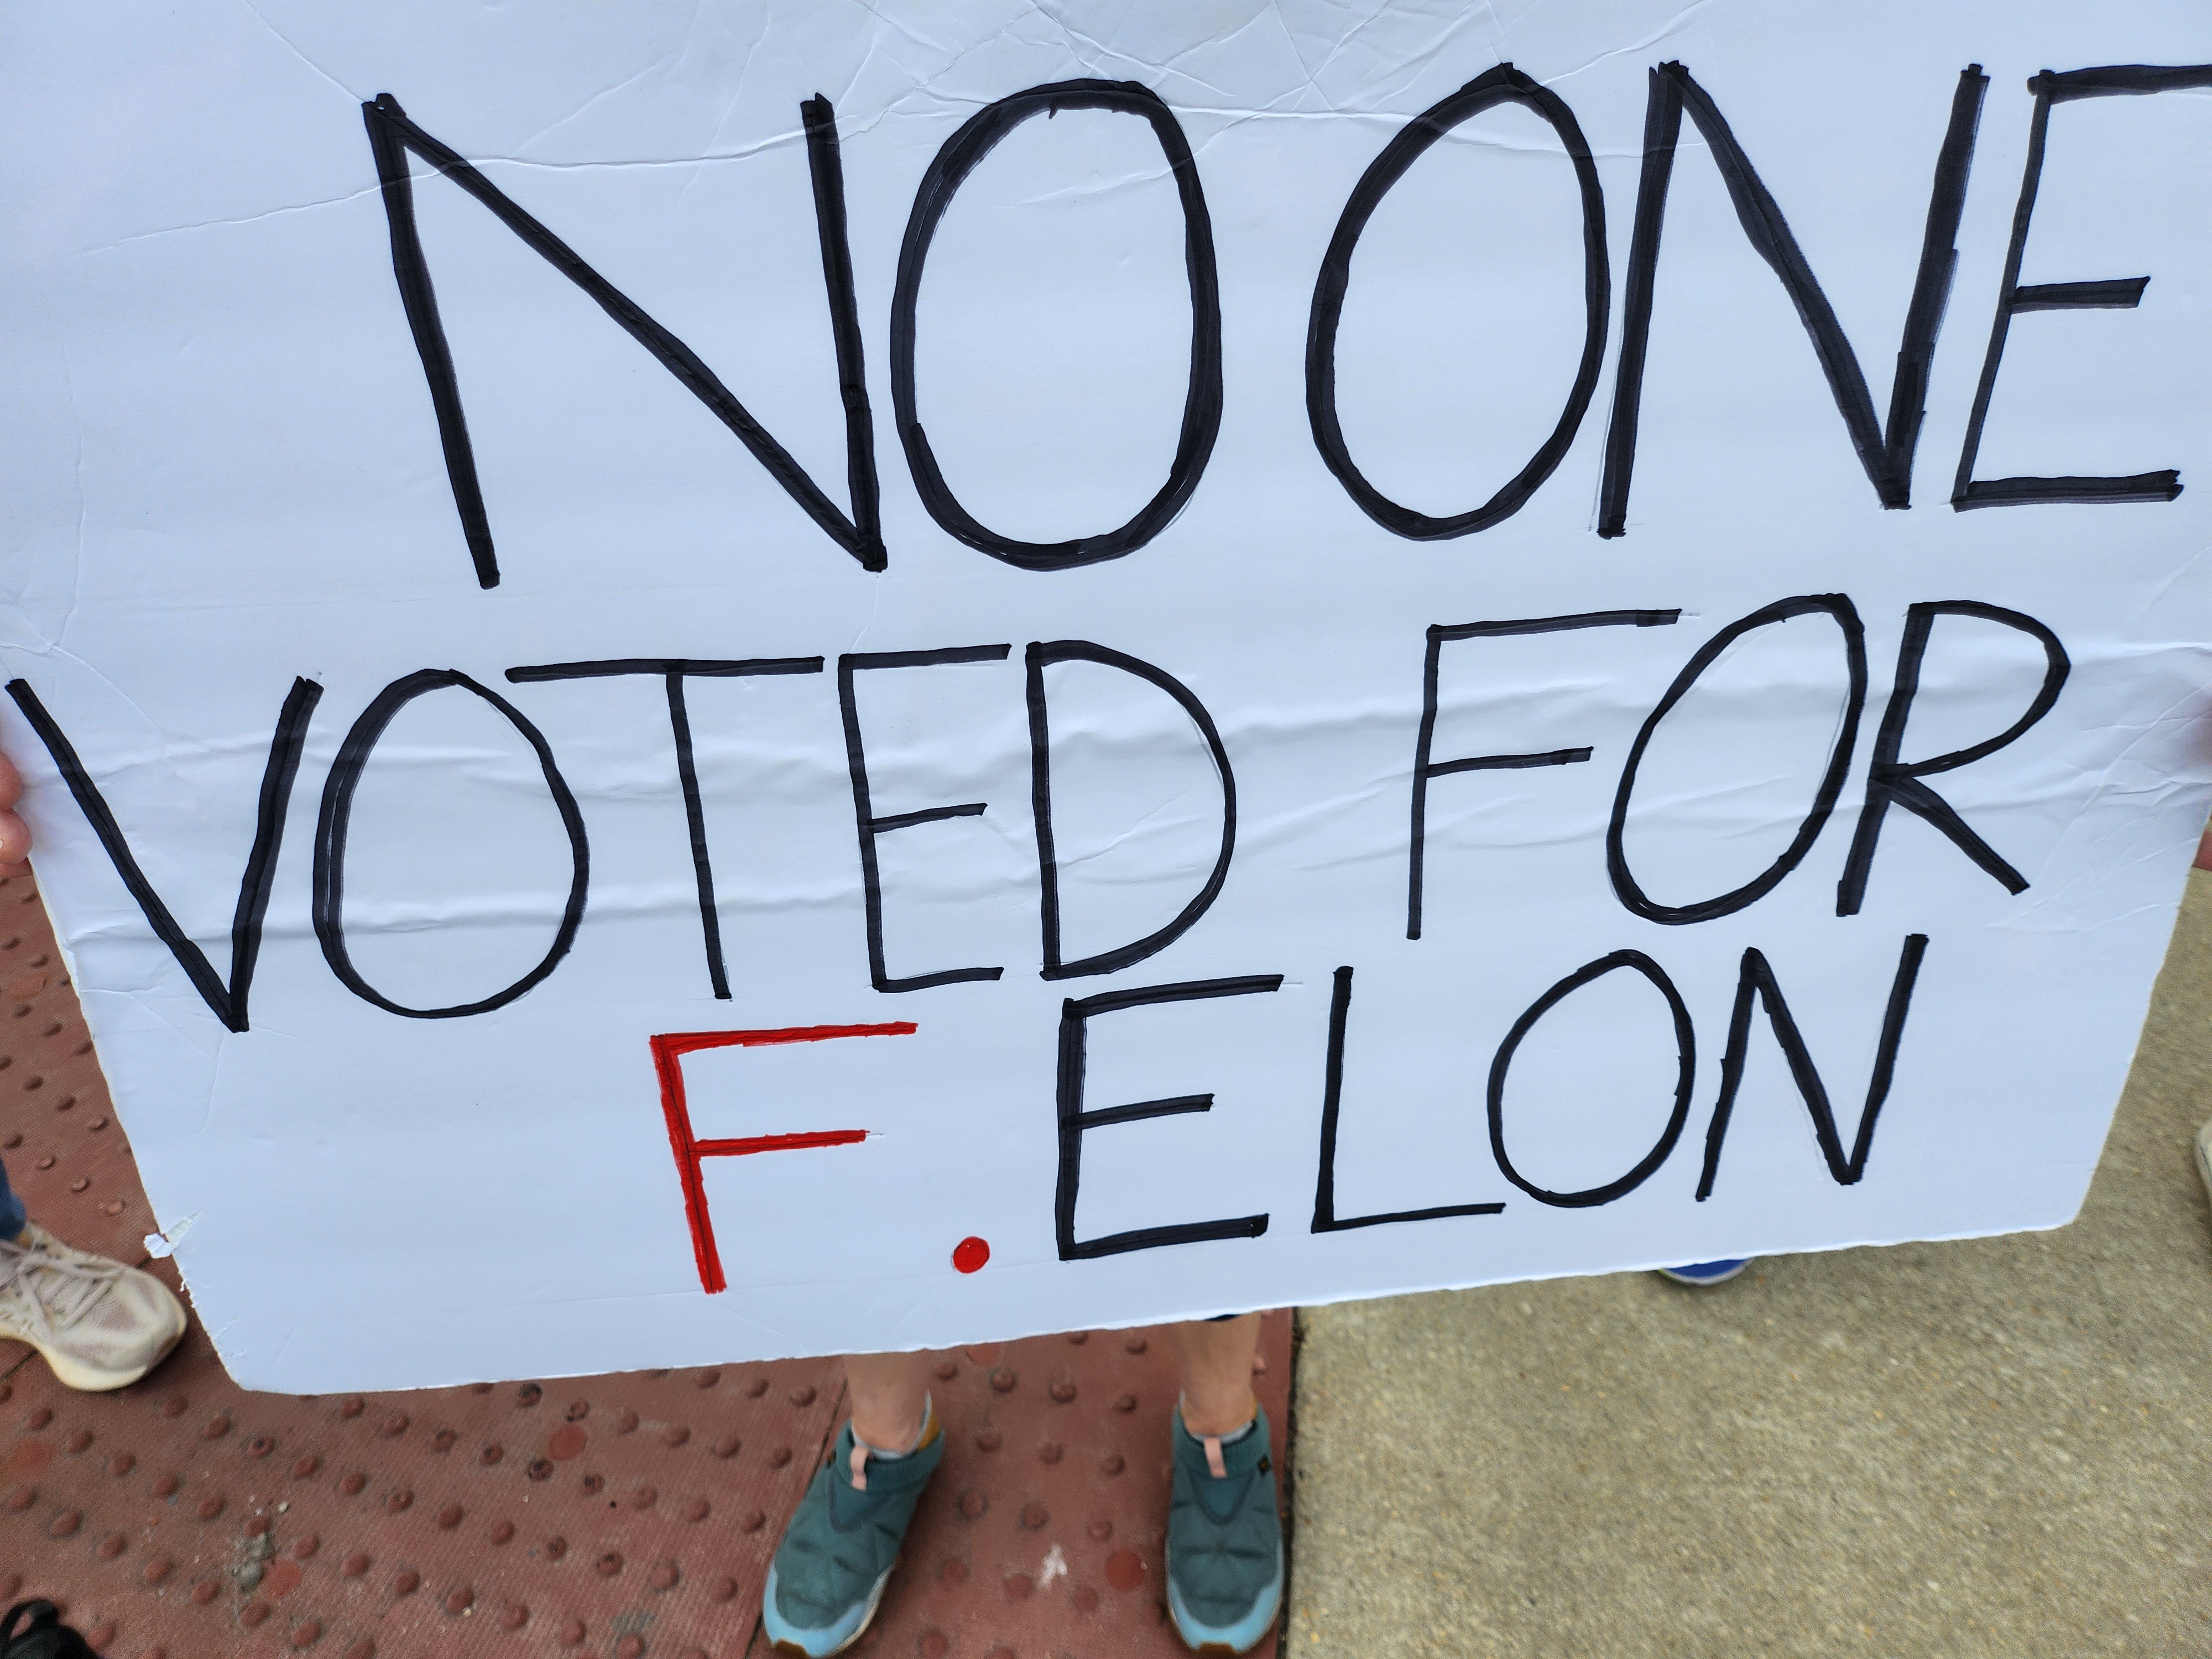 NO ONE
VOTED FOR
F.ELON